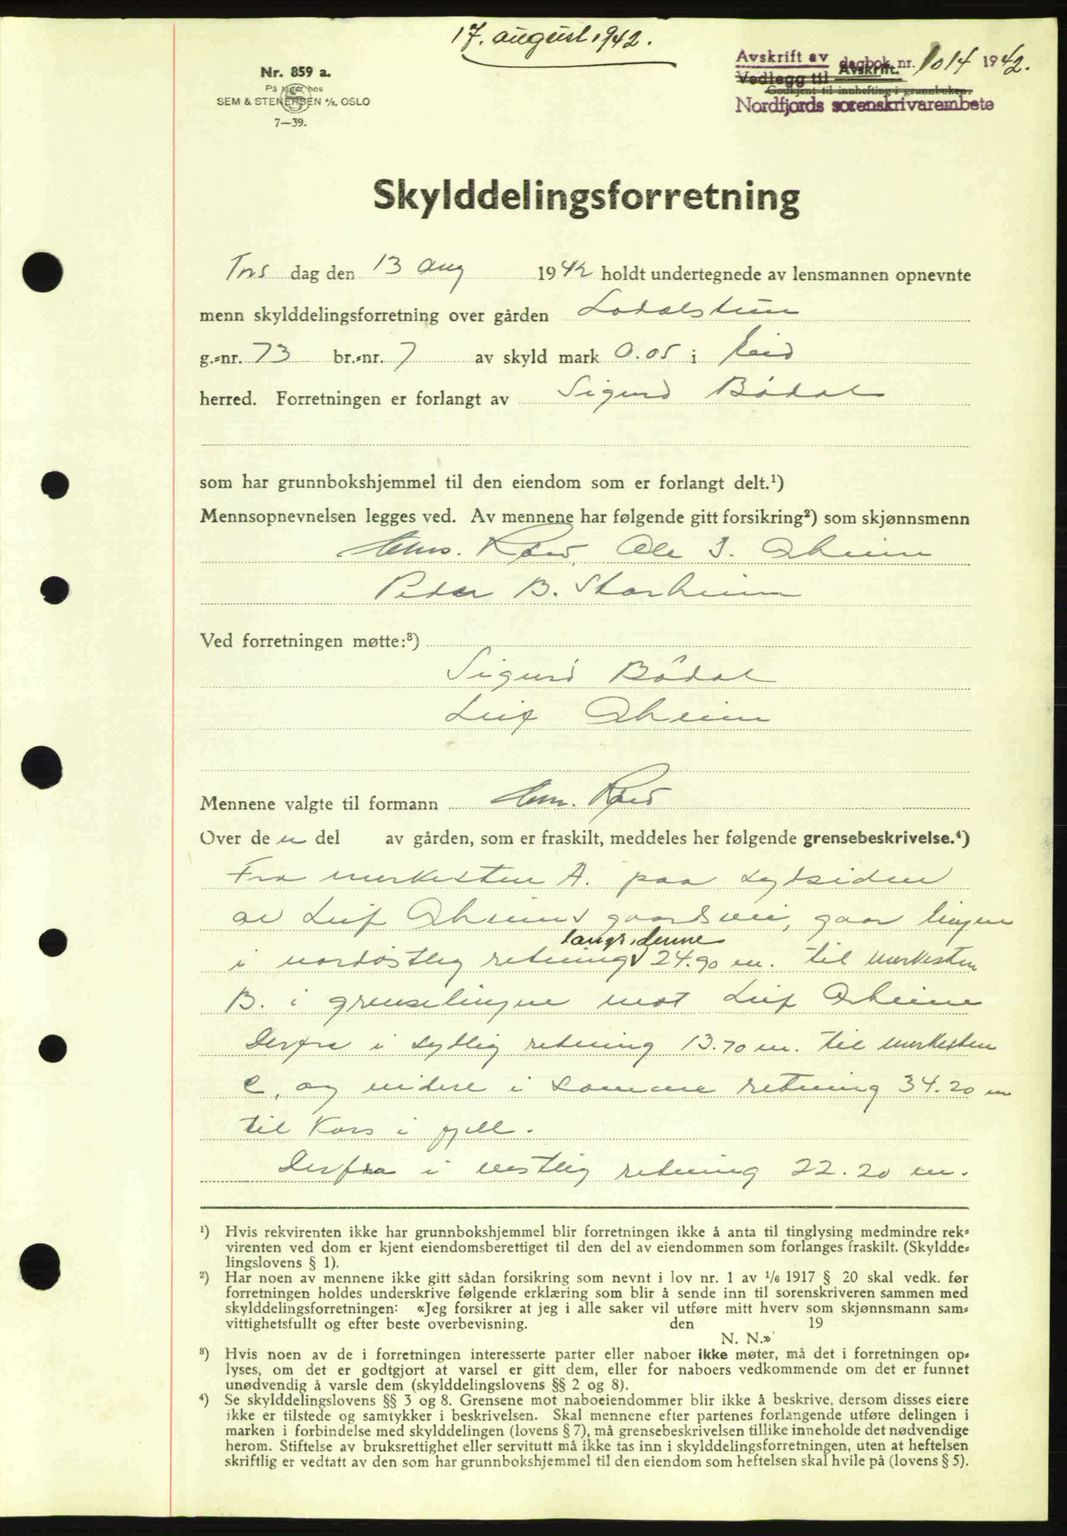 17. august 1942.
Avskrift av dagbok nr. 1014 1942.
Vedlegg til Avskrift.
Godkjent til innhefting i grunnboken.
Nordfjords sorenskrivarembete
Nr. 859 a.
På lager hos
SEM & STENERSEN A/S, OSLO
7—39.
Skylddelingsforretning
Tors dag den 13 aug 1942 holdt undertegnede av lensmannen opnevnte
menn skylddelingsforretning over gården Lodalstun
g.-nr. 73 br.-nr. 7 av skyld mark 0.05 i Eid
herred. Forretningen er forlangt av Sigurd Bödal
som har grunnbokshjemmel til den eiendom som er forlangt delt.¹)
Mennsopnevnelsen legges ved. Av mennene har følgende gitt forsikring²) som skjønnsmenn
Ole J.
Peder B. Starheim
Ved forretningen møtte:³)
Sigurd Bödal
Leif
Mennene valgte til formann
Over de n del av gården, som er fraskilt, meddeles her følgende grensebeskrivelse.⁴)
Fra merkesten A. paa sydsiden
av Leif gaardsvei, gaar linjen
langs denne
i nordöstlig retning 24.90 m. til merkesten
B. i grenselinjen mot Leif
Derfra i sydlig retning 13.70 m. til merkesten
C, og videre i samme retning 34.20 m
til Kors i fjell.
Derfra i vestlig retning 22.20 m.
¹) Hvis rekvirenten ikke har grunnbokshjemmel blir forretningen ikke å anta til tinglysing medmindre rek-
virenten ved dom er kjent eiendomsberettiget til den del av eiendommen som forlanges fraskilt. (Skyldde-
lingslovens § 1).
²) Har noen av mennene ikke gitt sådan forsikring som nevnt i lov nr. 1 av 1/6 1917 § 20 skal vedk. før
forretningen holdes underskrive følgende erklæring som blir å sende inn til sorenskriveren sammen med
skylddelingsforretningen: «Jeg forsikrer at jeg i alle saker vil utføre mitt hverv som skjønnsmann sam-
vittighetsfullt og efter beste overbevisning. den 19
N. N.»
³) Hvis noen av de i forretningen interesserte parter eller naboer ikke møter, må det i forretningen op-
lyses, om det er godtgjort at varsel er gitt dem, eller for naboers vedkommende om det er funnet
unødvendig å varsle dem (skylddelingslovens §§ 2 og 8).
⁴) Se skylddelingslovens §§ 3 og 8. Grensene mot naboeiendommer blir ikke å beskrive, dersom disses eiere
ikke er tilstede og samtykker i beskrivelsen. Skal mennene efter partenes forlangende utføre delingen i
marken i forbindelse med skylddelingen (lovens § 7), må grensebeskrivelsen tillike inneholde det nødvendige
herom. Stiftelse av bruksrettighet eller servitutt må ikke tas inn i skylddelingsforretningen, uten at heftelsen
skriftlig er vedtatt av den som har grunnbokshjemmel til den eiendom som heftelsen skal hvile på (lovens § 5).